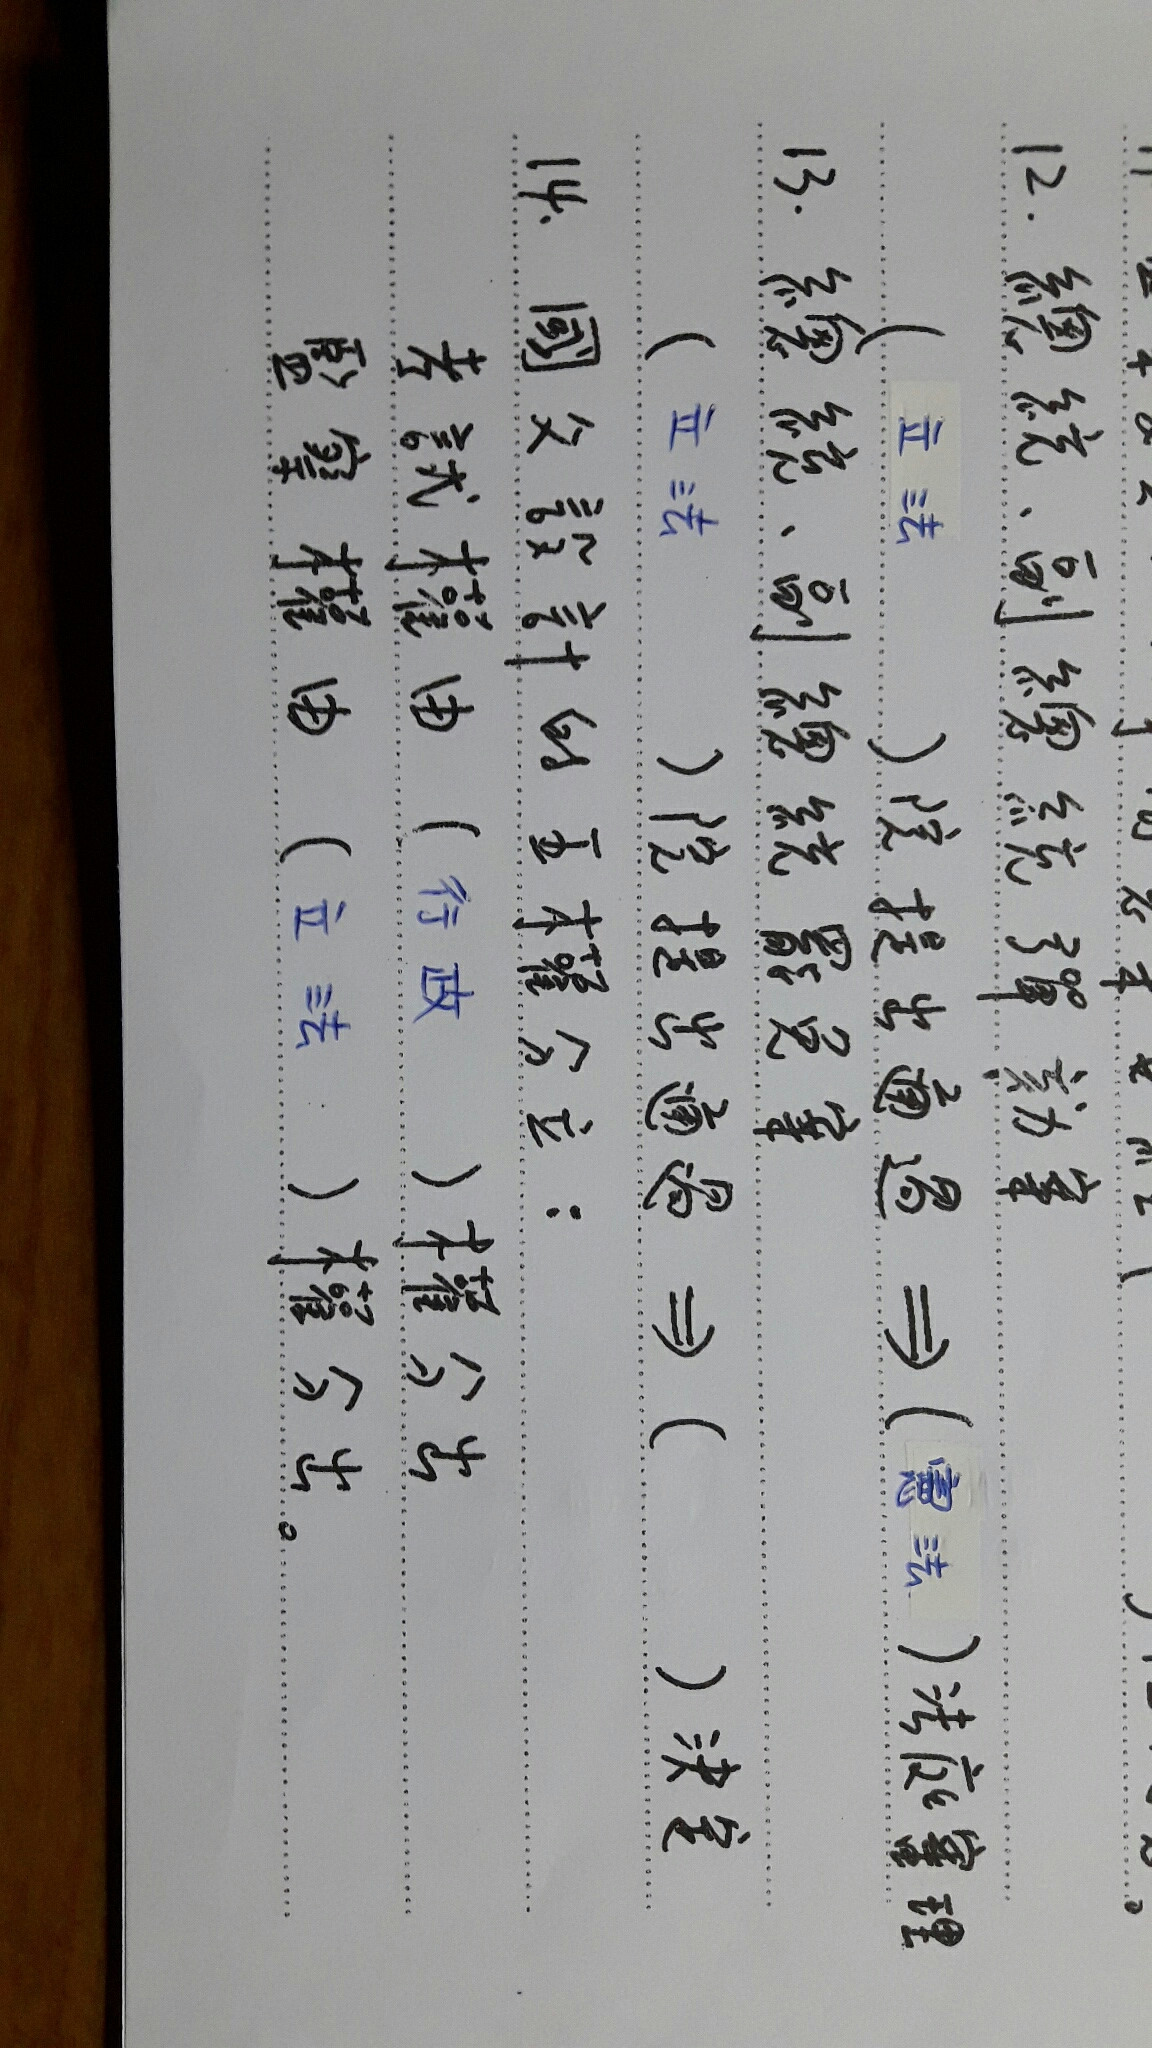 12. 總統、副總統彈劾案
(立法)院提出通過⇒(憲法)法庭審理
13. 總統、副總統罷免案
(立法)院提出通過⇒( )決定
14. 國父設計的五權分立:
考試權由(行政)權分出
監察權由(立法)權分出。